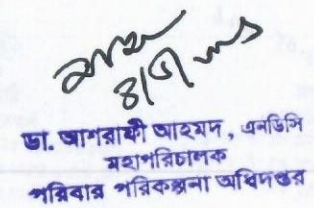 ডা. আশরাফী আহমদ, এনডিসি
মহাপরিচালক
পরিবার পরিকল্পনা অধিদপ্তর